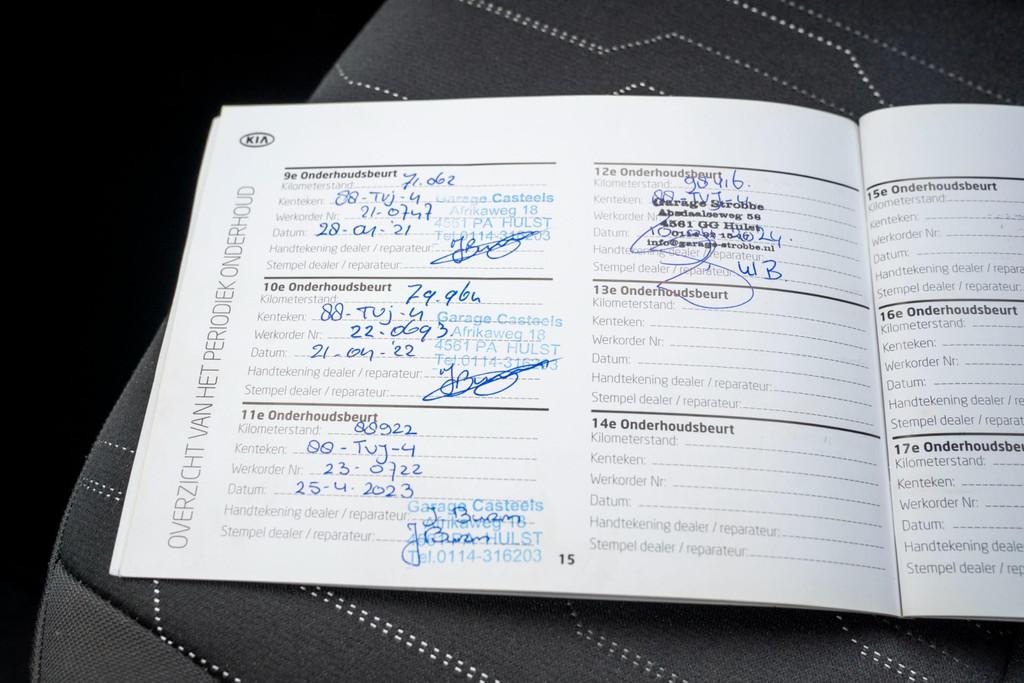 KIA
OVERZICHT VAN HET PERIODIEK ONDERHOUD
9e Onderhoudsbeurt
Kilometerstand: 71.062
Kenteken: 88-TVJ-4
Werkorder Nr: 21-0747
Datum: 28-01-'21
Handtekening dealer / reparateur:
Stempel dealer / reparateur:
Garage Casteels
Afrikaweg 18
4561 PA HULST
Tel.0114-316203
10e Onderhoudsbeurt
Kilometerstand: 79.964
Kenteken: 88-TVJ-4
Werkorder Nr: 22-0693
Datum: 21-04-'22
Handtekening dealer / reparateur:
Stempel dealer / reparateur:
Garage Casteels
Afrikaweg 18
4561 PA HULST
Tel.0114-316203
11e Onderhoudsbeurt
Kilometerstand: 88922
Kenteken: 88-TVJ-4
Werkorder Nr: 23-0722
Datum: 25-4-2023
Handtekening dealer / reparateur:
Stempel dealer / reparateur:
Garage Casteels
Afrikaweg 18
HULST
Tel.0114-316203
15
12e Onderhoudsbeurt
Kilometerstand: 98416.
Kenteken: 88-TVJ-4
Werkorder
Datum:
Handtekening dealer / reparateur:
Stempel dealer / reparateur: WB.
Garage Strobbe
Absdaalseweg 58
4561 GG Hulst
info@garage-strobbe.nl
13e Onderhoudsbeurt
Kilometerstand:
Kenteken:
Werkorder Nr:
Datum:
Handtekening dealer / reparateur:
Stempel dealer / reparateur:
14e Onderhoudsbeurt
Kilometerstand:
Kenteken:
Werkorder Nr:
Datum:
Handtekening dealer / reparateur:
Stempel dealer / reparateur:
15e Onderhoudsbeurt
Kilometerstand:
Kenteken:
Werkorder Nr:
Datum:
Handtekening dealer / reparateur:
Stempel dealer / reparateur:
16e Onderhoudsbeurt
Kilometerstand:
Kenteken:
Werkorder Nr:
Datum:
Handtekening dealer / re
Stempel dealer / repara
17e Onderhoudsbe
Kilometerstand:
Kenteken:
Werkorder Nr:
Datum:
Handtekening dealer / re
Stempel dealer / rep